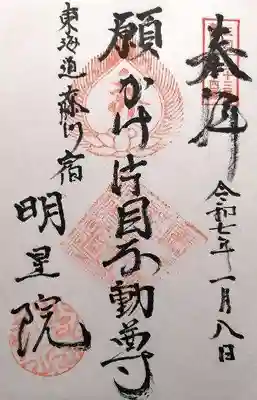 奉拝
令和七年一月八日
願かけ片目不動尊
東海道藤川宿
明星院